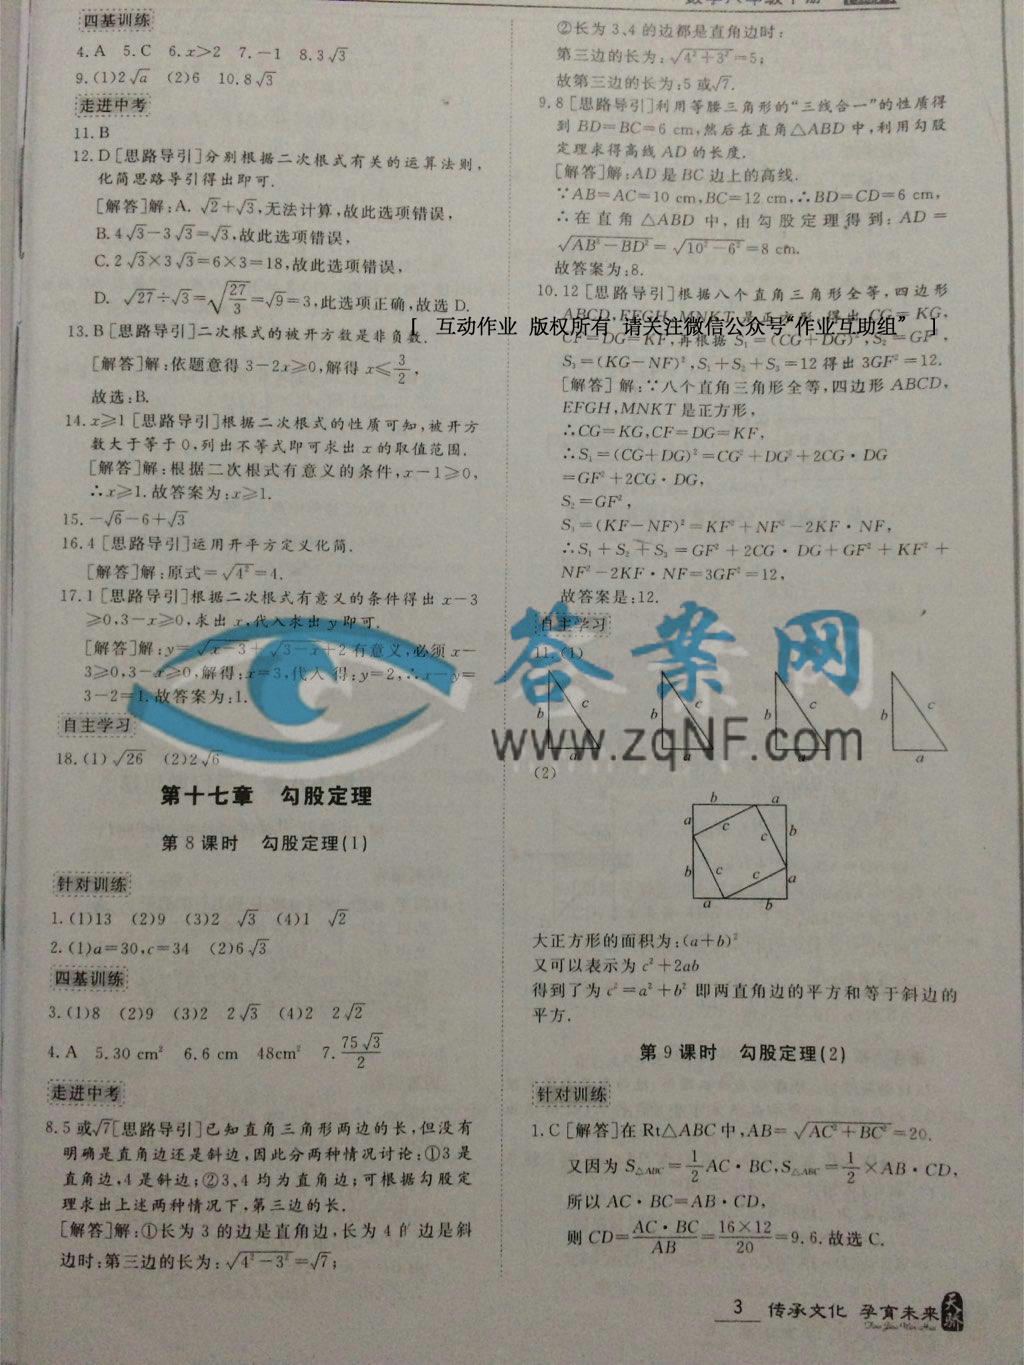 四基训练
4.A 5.C 6.x>2 7.-1 8.3√3
9.(1)2√a (2)6 10.8√3
走进中考
11.B
12.D[思路导引]分别根据二次根式有关的运算法则,
化简思路导引得出即可.
[解答]解:A. √2+√3,无法计算,故此选项错误,
B.4√3-3√3=√3,故此选项错误,
C.2√3×3√3=6×3=18,故此选项错误,
D. √27÷√3=√(27/3)=√9=3,此选项正确,故选D.
13.B[思路导引]二次根式的被开方数是非负数.
[解答]解:依题意得3-2x≥0,解得x≤3/2,
故选:B.
14.x≥1[思路导引]根据二次根式的性质可知,被开方
数大于等于0,列出不等式即可求出x的取值范围.
[解答]解:根据二次根式有意义的条件,x-1≥0,
∴x≥1.故答案为:x≥1.
15.-√6-6+√3
16.4[思路导引]运用开平方定义化简.
[解答]解:原式=√4²=4.
17.1[思路导引]根据二次根式有意义的条件得出x-3
≥0,3-x≥0,求出x,代入求出y即可.
[解答]解:y=√x-3+√3-x+2有意义,必须x-
3≥0,3-x≥0,解得:x=3,代入得:y=2,∴x-y=
3-2=1.故答案为:1.
自主学习
18.(1)√26 (2)2√6
第十七章 勾股定理
第8课时 勾股定理(1)
针对训练
1.(1)13 (2)9 (3)2 √3 (4)1 √2
2.(1)a=30,c=34 (2)6√3
四基训练
3.(1)8 (2)9 (3)2 2√3 (4)2 2√2
4.A 5.30 cm² 6.6 cm 48cm² 7.75√3/2
走进中考
8.5或√7[思路导引]已知直角三角形两边的长,但没有
明确是直角边还是斜边,因此分两种情况讨论:①3是
直角边,4是斜边;②3、4均为直角边;可根据勾股定
理求出上述两种情况下,第三边的长.
[解答]解:①长为3的边是直角边,长为4的边是斜
边时:第三边的长为:√4²-3²=√7;
②长为3、4的边都是直角边时:
第三边的长为:√4²+3²=5;
故第三边的长为:5或√7.
9.8[思路导引]利用等腰三角形的“三线合一”的性质得
到BD=BC=6 cm,然后在直角△ABD中,利用勾股
定理求得高线AD的长度.
[解答]解:AD是BC边上的高线.
∵AB=AC=10 cm,BC=12 cm,∴BD=CD=6 cm,
∴在直角△ABD中,由勾股定理得到:AD=
√AB²-BD²=√10²-6²=8 cm.
故答案为:8.
10.12[思路导引]根据八个直角三角形全等,四边形
ABCD,EFGH,MNKT是正方形,得出CG=KG,
[ 互动作业 版权所有 请关注微信公众号“作业互助组” ]
CF=DG=KF,再根据S₁=(CG+DG)²,S₂=GF²,
S₃=(KG-NF)²,S₁+S₂+S₃=12得出3GF²=12.
[解答]解:∵八个直角三角形全等,四边形ABCD,
EFGH,MNKT是正方形,
∴CG=KG,CF=DG=KF,
∴S₁=(CG+DG)²=CG²+DG²+2CG·DG
=GF²+2CG·DG,
S₂=GF²,
S₃=(KF-NF)²=KF²+NF²-2KF·NF,
∴S₁+S₂+S₃=GF²+2CG·DG+GF²+KF²+
NF²-2KF·NF=3GF²=12,
故答案是:12.
自主学习
11.(1)
答案网
www.zqNF.com
b c a b c a b c a b c a
(2)
b a
a c c b
b c c a
a b
大正方形的面积为:(a+b)²
又可以表示为c²+2ab
得到了为c²=a²+b²即两直角边的平方和等于斜边的
平方.
第9课时 勾股定理(2)
针对训练
1.C[解答]在Rt△ABC中,AB=√AC²+BC²=20.
又因为S△ABC=1/2AC·BC,S△ABC=1/2×AB·CD,
所以AC·BC=AB·CD,
则CD=AC·BC/AB=16×12/20=9.6.故选C.
3 传承文化 孕育未来
天骄